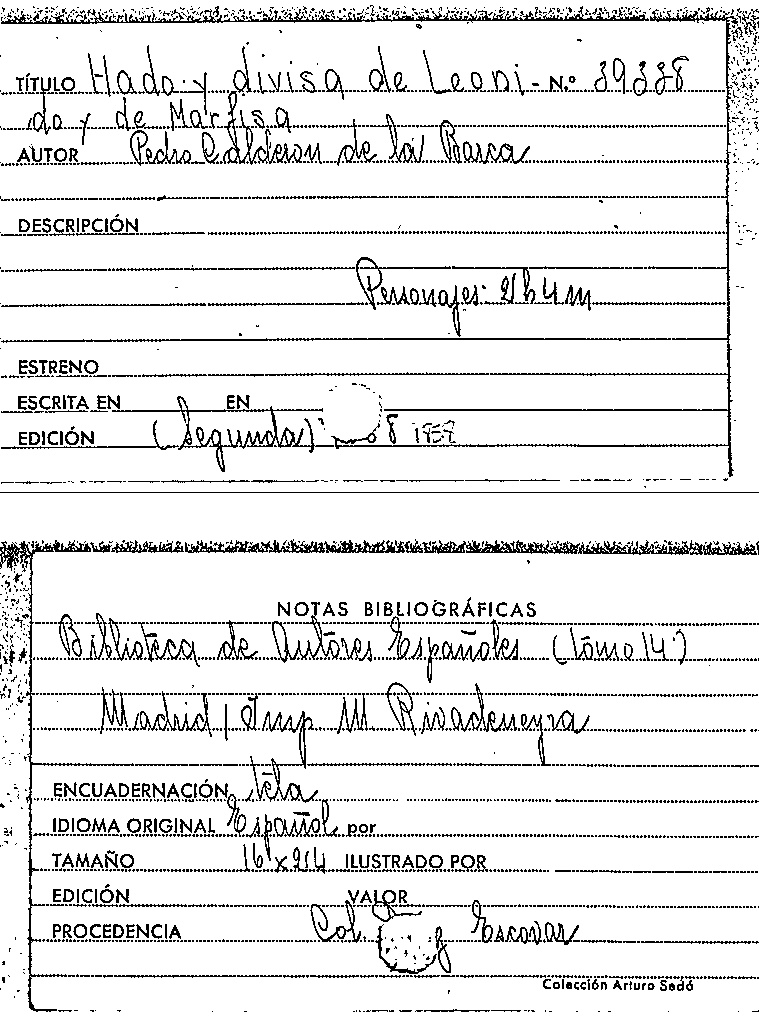 TÍTULO Hado y divisa de Leoni- N.º 39338
do y de Marfisa
AUTOR Pedro Calderon de la Barca
DESCRIPCIÓN
Personajes: 21 h 4 m
ESTRENO
ESCRITA EN EN
EDICIÓN (Segunda)
NOTAS BIBLIOGRÁFICAS
Biblioteca de Autores Españoles (tomo 14)
Madrid / Imp M. Rivadeneyra
ENCUADERNACIÓN tela
IDIOMA ORIGINAL Español por
TAMAÑO 16 x 24 ILUSTRADO POR
EDICIÓN VALOR
PROCEDENCIA Col. Escovar
Colección Arturo Sedó